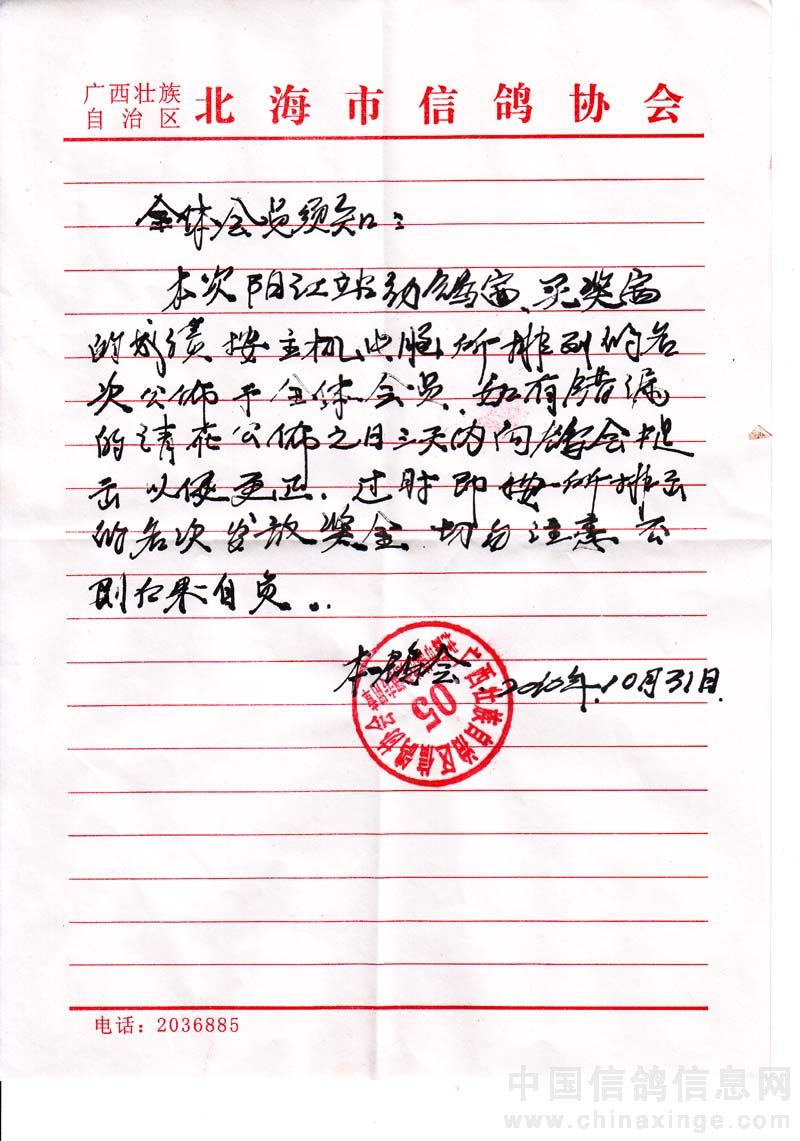 广西壮族
自治区
北海市信鸽协会
全体会员须知：
本次阳江站幼鸽赛、买奖赛
的成绩按主机电脑所排列的名
次公佈于全体会员，如有错漏
的请在公佈之日三天内向鸽会提
出以便更正，过时即按所排出
的名次发放奖金 切勿注意 否
则后果自负。
本鸽会
2010年10月31日
广西壮族自治区信鸽协会
05
电话：2036885
中国信鸽信息网
www.chinaxinge.com